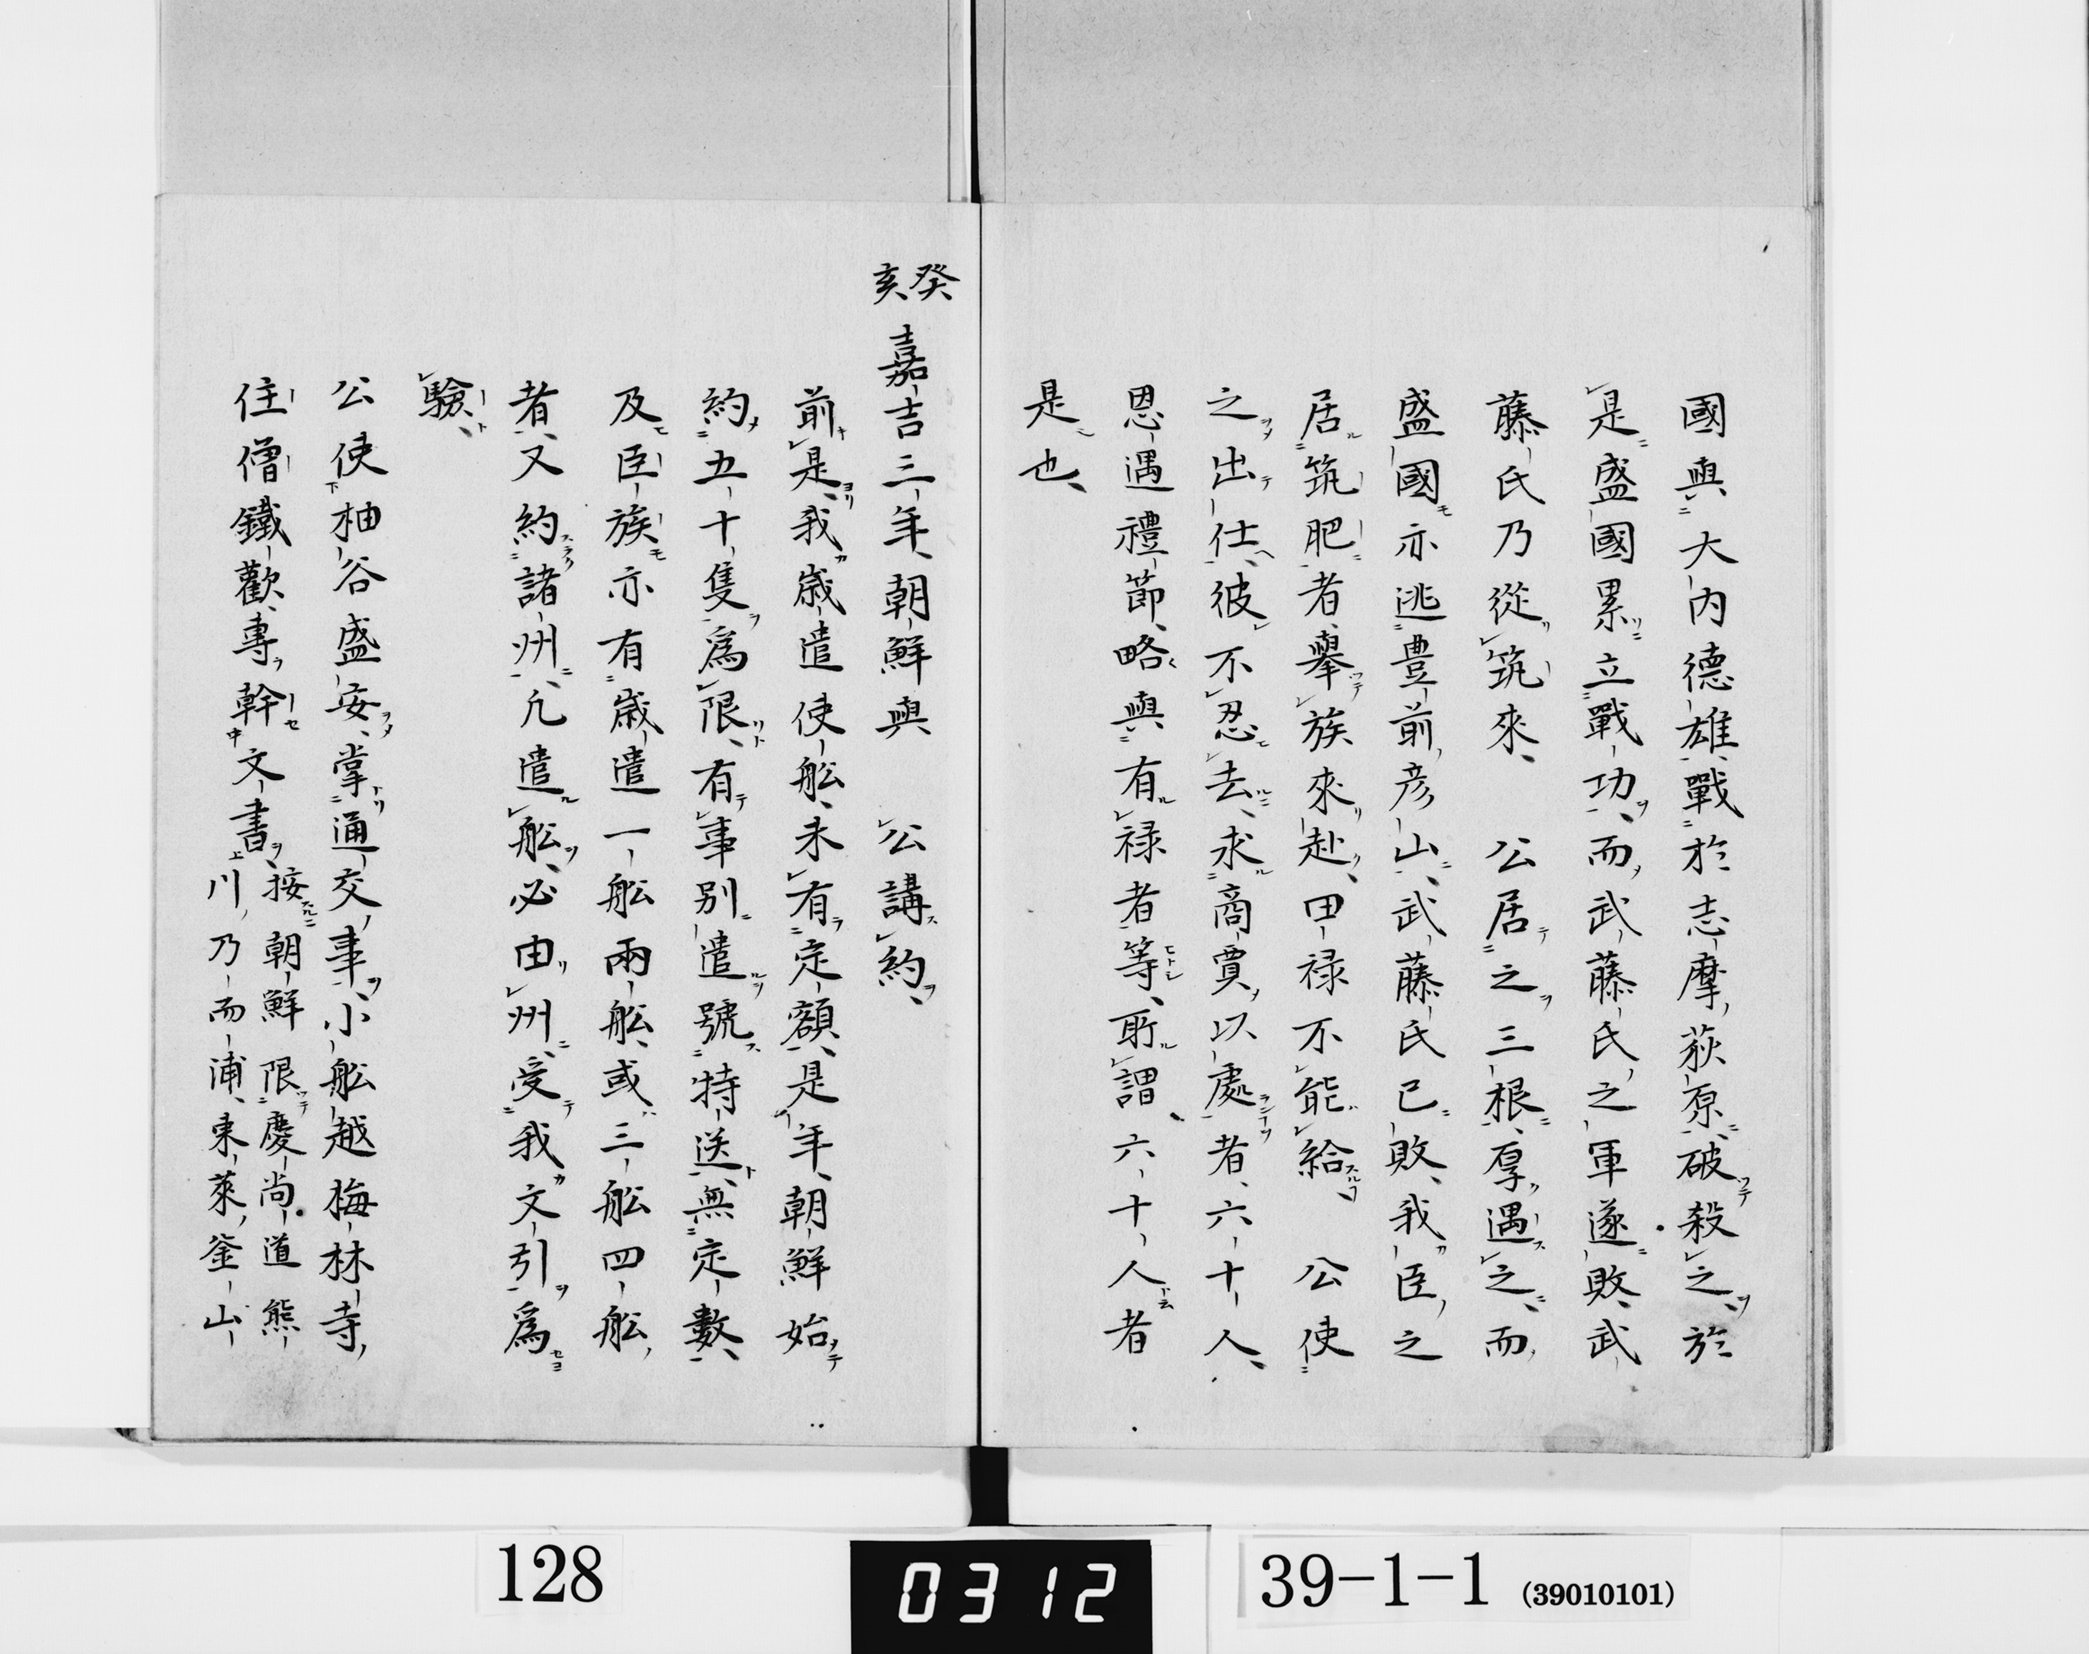 國與大内德雄戰於志摩萩原破殺之於
是盛國累立戰功而武藤氏之軍遂敗武
藤氏乃從筑來　公居之三根厚遇之而
盛國亦逃豊前彦山武藤氏已敗我臣之
居筑肥者舉族來赴田禄不能給　公使
之出仕彼不忍去求商賈以處者六十人
恩遇禮節略與有禄者等所謂六十人者
是也
癸亥
嘉吉三年朝鮮與　公講約
前是我歲遣使舩未有定額是年朝鮮始
約五十隻爲限有事別遣號特送無定數
及臣族亦有歲遣一舩兩舩或三舩四舩
者又約諸州凢遣舩必由州受我文引爲
驗
公使柚谷盛安掌通交事小舩越梅林寺
住僧鐵歡專幹文書接朝鮮限慶尚道熊
川乃而浦東萊釜山
128
0312
39-1-1 (39010101)